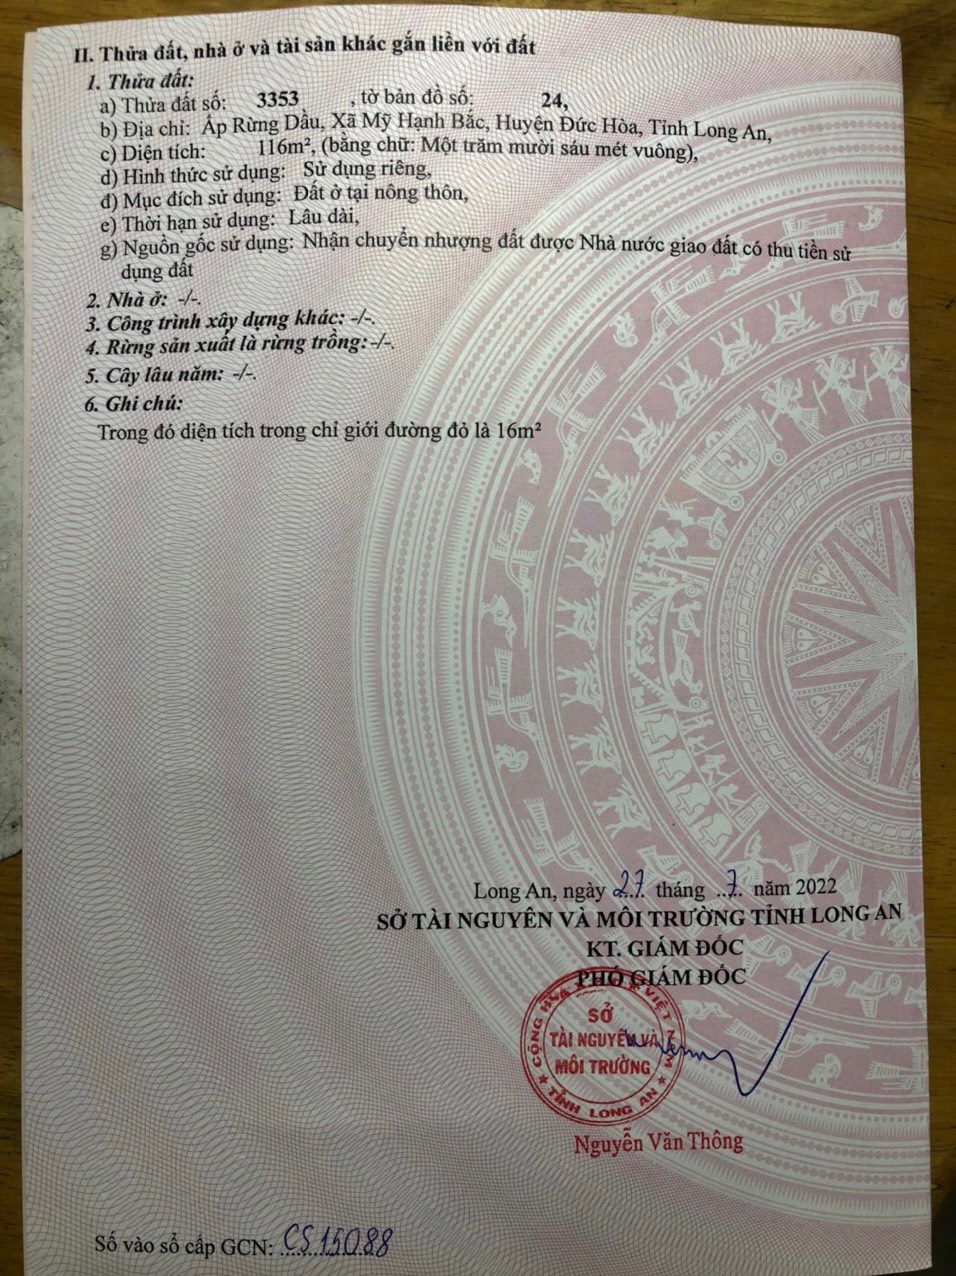 II. Thửa đất, nhà ở và tài sản khác gắn liền với đất
1. Thửa đất:
a) Thửa đất số: 3353 , tờ bản đồ số: 24,
b) Địa chỉ: Ấp Rừng Dầu, Xã Mỹ Hạnh Bắc, Huyện Đức Hòa, Tỉnh Long An,
c) Diện tích: 116m², (bằng chữ: Một trăm mười sáu mét vuông),
d) Hình thức sử dụng: Sử dụng riêng,
đ) Mục đích sử dụng: Đất ở tại nông thôn,
e) Thời hạn sử dụng: Lâu dài,
g) Nguồn gốc sử dụng: Nhận chuyển nhượng đất được Nhà nước giao đất có thu tiền sử
dụng đất
2. Nhà ở: -/-.
3. Công trình xây dựng khác: -/-.
4. Rừng sản xuất là rừng trồng: -/-.
5. Cây lâu năm: -/-.
6. Ghi chú:
Trong đó diện tích trong chỉ giới đường đỏ là 16m²
Long An, ngày 27 tháng 7 năm 2022
SỞ TÀI NGUYÊN VÀ MÔI TRƯỜNG TỈNH LONG AN
KT. GIÁM ĐỐC
PHÓ GIÁM ĐỐC
SỞ
TÀI NGUYÊN VÀ
MÔI TRƯỜNG
TỈNH LONG AN
Nguyễn Văn Thông
Số vào sổ cấp GCN: CS15088